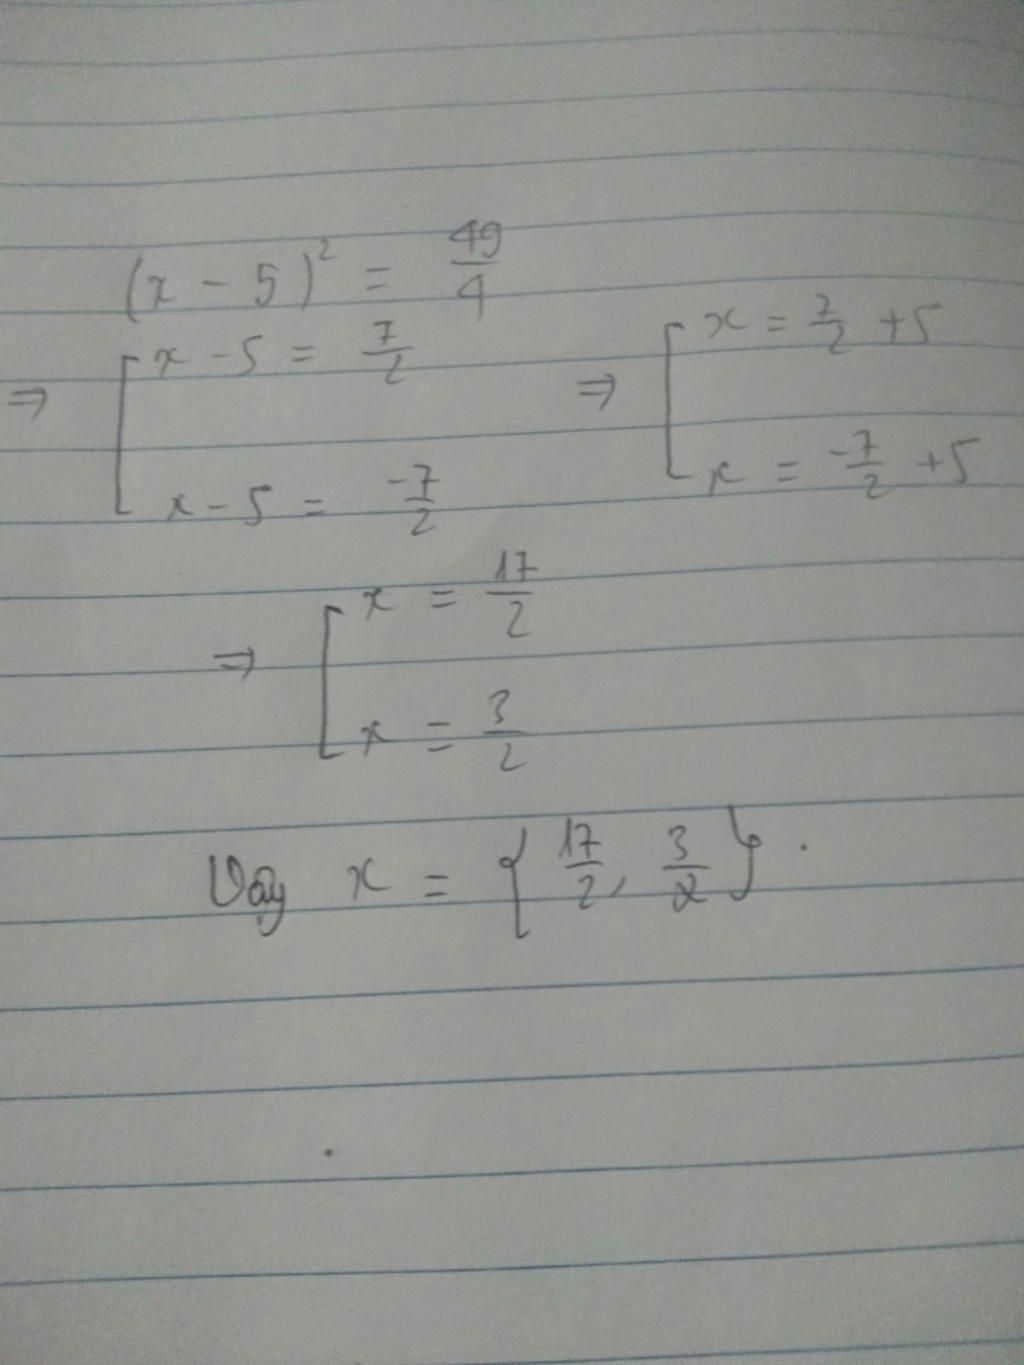 (x - 5)² = 49/4
⇒ [ x - 5 = 7/2 ⇒ [ x = 7/2 + 5
x - 5 = -7/2 x = -7/2 + 5
⇒ [ x = 17/2
x = 3/2
Vậy x = { 17/2, 3/2 } .